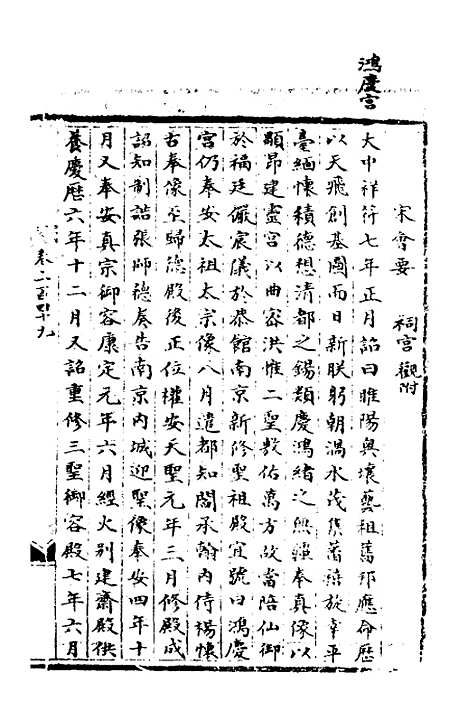 鴻慶宮
宋會要 祠宮觀附
大中祥符七年正月詔曰睢陽奧壤藝祖舊邦應命歷
以天飛創基圖而日新朕躬朝渦水茂舊禧放幸平
臺緬懷積德想清都之錫類慶鴻緒之興奉真像以
顒昂建靈宮以曲密洪惟二聖敷佑萬方故當陪仙御
於福廷儼宸儀於恭館南京新修聖祖殿宜號曰鴻慶
宮仍奉安太祖太宗像八月遣都知閻承翰內侍楊懷
古奉像至歸德殿後正位權安天聖元年三月修殿成
詔知制誥張師德奏告南京內城迎聖像奉安四年十
月又奉安真宗御容康定元年六月經火別建齋殿供
養慶曆六年十二月又詔重修三聖御容殿七年六月
卷二百四十九